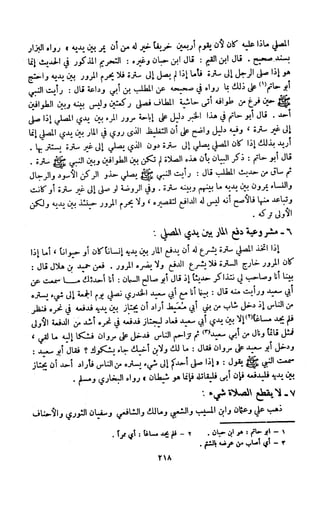 المصلي ماذا عليه كان لأن يقوم أربعين خريفاً خير له من أن يمر بين يديه » رواه البزار
بسند صحيح . قال ابن القيم : قال ابن حبان وغيره : التحريم المذكور في الحديث إنما
هو إذا صلى الرجل إلى سترة فأما إذا لم يصل إلى سترة فلا يحرم المرور بين يديه واحتج
أبو حاتم(١) على ذلك بما رواه في صحيحه عن المطلب بن أبي وداعة قال : رأيت النبي
ﷺ حين فرغ من طوافه أتى حاشية المطاف فصلى ركعتين وليس بينه وبين الطوافين
أحد . قال أبو حاتم في هذا الخبر دليل على إباحة مرور المرء بين يدي المصلي إذا صلى
إلى غير سترة ، وفيه دليل واضح على أن التغليظ الذي روي في المار بين يدي المصلي إنما
أريد بذلك إذا كان المصلي يصلي إلى سترة دون الذي يصلي إلى غير سترة يستتر بها .
قال أبو حاتم : ذكر البيان بأن هذه الصلاة لم تكن بين الطوافين وبين النبي ﷺ سترة .
ثم ساق من حديث المطلب قال : رأيت النبي ﷺ يصلي حذو الركن الأسود والرجال
والنساء يمرون بين يديه ما بينهم وبينه سترة . وفي الروضة لو صلى إلى غير سترة أو كانت
وتباعد منها فالأصح أنه ليس له الدافع لتقصيره ، ولا يحرم المرور حينئذ بين يديه ولكن
الأولى تركه .
٦ - مشروعية دفع المار بين يدي المصلي :
إذا اتخذ المصلي سترة يشرع له أن يدفع المار بين يديه إنساناً كان أو حيواناً ، أما إذا
كان المرور خارج السترة فلا يشرع الدفع ولا يضره المرور . فعن حميد بن هلال قال :
بينا أنا وصاحب لي نتذاكر حديثاً إذ قال أبو صالح السمان : أنا أحدثك ما سمعت عن
أبي سعيد ورأيت منه قال : بينما أنا مع أبي سعيد الخدري نصلي يوم الجمعة إلى شيء يستره
من الناس إذ دخل شاب من بني أبي معيط أراد أن يجتاز بين يديه فدفعه في نحره فنظر
فلم يجد مساغاً(٢) إلا بين يدي أبي سعيد فعاد ليجتاز فدفعه في نحره أشد من الدفعة الأولى
فمثل قائماً ونال من أبي سعيد(٣) ثم تزاحم الناس فدخل على مروان فشكا إليه ما لقي ،
ودخل أبو سعيد على مروان فقال : ما لك ولابن أخيك جاء يشكوك ؟ فقال أبو سعيد :
سمعت النبي ﷺ يقول : « إذا صلى أحدكم إلى شيء يستره من الناس فأراد أحد أن يجتاز
بين يديه فليدفعه فإن أبى فليقاتله فإنما هو شيطان » رواه البخاري ومسلم .
٧ - لا يقطع الصلاة شيء :
ذهب علي وعثمان وابن المسيب والشعبي ومالك والشافعي وسفيان الثوري والأحناف
١ - أبو حاتم : هو ابن حبان . ٢ - فلم يجد مساغاً : أي ممراً .
٣ - أي أصاب من عرضه بالشتم .
٢١٨